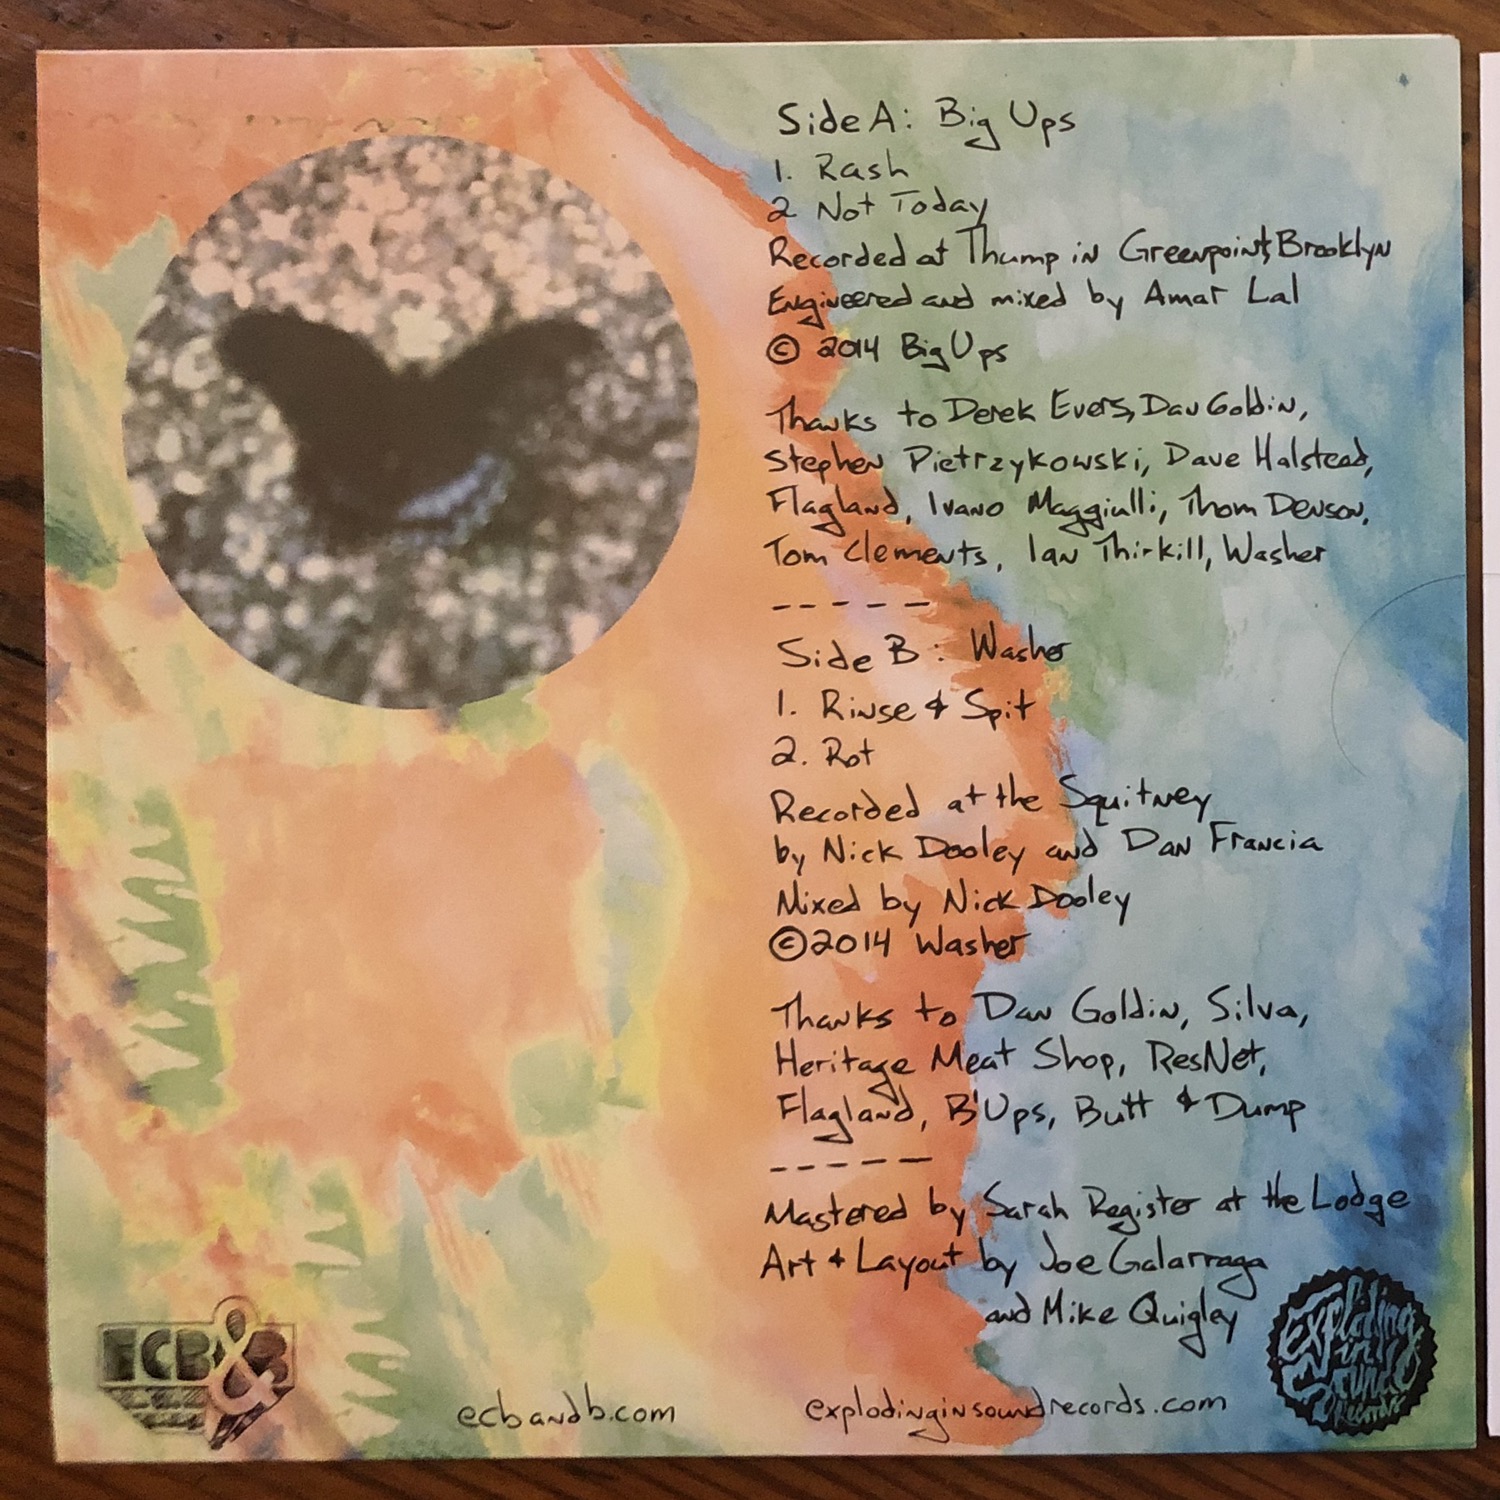 Side A: Big Ups
1. Rash
2 Not Today
Recorded at Thump in Greenpoint, Brooklyn
Engineered and mixed by Amar Lal
© 2014 Big Ups
Thanks to Derek Evers, Dan Goldin,
Stephen Pietrzykowski, Dave Halstead,
Flagland, Ivano Maggiulli, Thom Denson,
Tom Clements, Ian Thirkill, Washer
-----
Side B: Washer
1. Rinse & Spit
2. Rot
Recorded at the Squitney
by Nick Dooley and Dan Francia
Mixed by Nick Dooley
©2014 Washer
Thanks to Dan Goldin, Silva,
Heritage Meat Shop, ResNet,
Flagland, B'Ups, Butt & Dump
-----
Mastered by Sarah Register at the Lodge
Art + Layout by Joe Galarraga
and Mike Quigley
ECB&B
ecbandb.com
explodinginsoundrecords.com
Exploding
in
Sound
Records